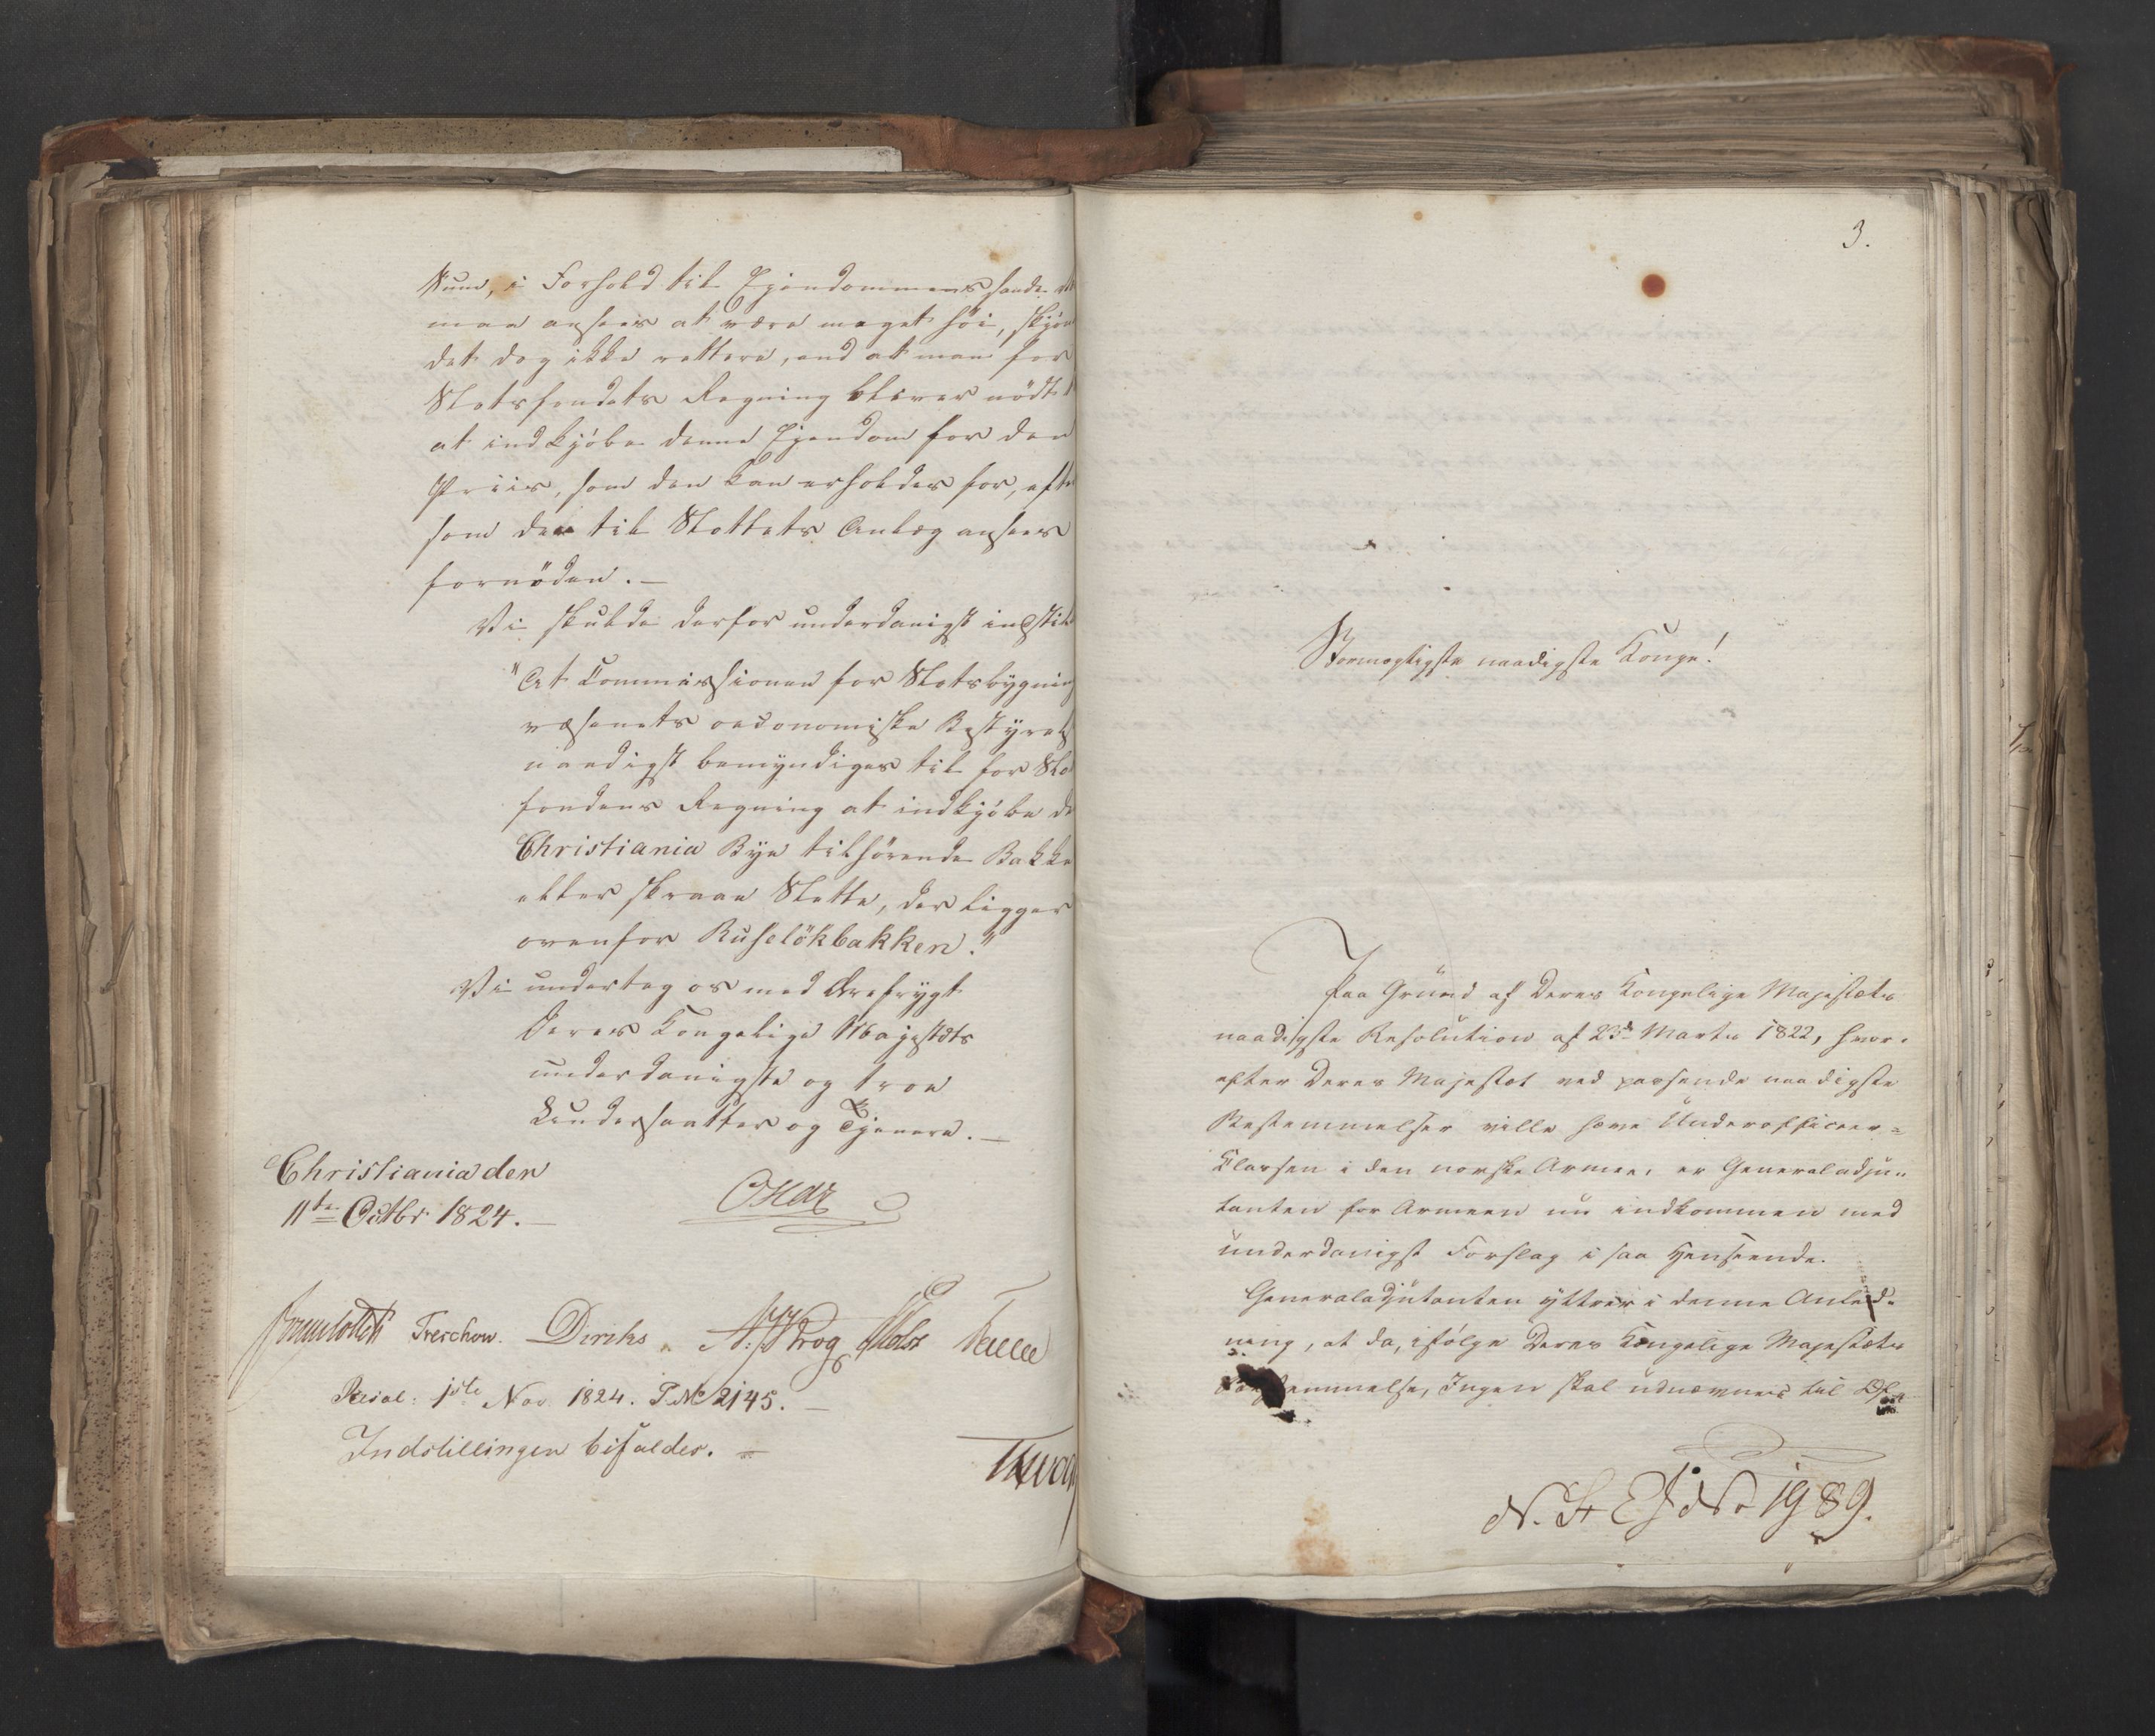 Sum, i Forhold til Ejendommens sande
maa ansees at være meget høi, skjøn
det dog ikke rettere, end at man for
Slotsfondets Regning bliver nødt
at indkjøbe denne Ejendom for den
Priis, som den kan erholdes for, efter
som den til Slottets Anlæg ansees
fornøden. —
Vi skulde derfor underdanigst indstil
"At Commissionen for Slotsbygning
væsenets oeconomiske Bestyrels
naadigst bemyndiges til for Slo
fondens Regning at indkjøbe de
Christiania Bye tilhørende Bakke
eller skraae Slette, der ligger
ovenfor Ruseløkbakken."
Vi undertegne os med Ærefrygt
Deres Kongelige Majestæts
underdanigste og troe
Undersaatter og Tjenere. —
Christiania den
11te Octbr 1824. —
Oscar
Treschow. Diriks. Krog
Resol: 1ste Nov. 1824. P. No 2145. —
Indstillingen bifaldes. —
3.
Stormægtigste naadigste Konge!
Paa Grund af Deres Kongelige Majestæts
naadigste Resolution af 23de Marts 1822, hvor-
efter Deres Majestæt ved passende naadigste
Bestemmelser ville hæve Underofficeer-
Classen i den norske Armee, er Generaladju-
tanten for Armeen nu indkommen med
underdanigst Forslag i saa Henseende.
Generaladjutanten yttrer i denne Anled-
ning, at da, ifølge Deres Kongelige Majestæts
Bestemmelse, Ingen skal udnævnes til Of-
No 1989.